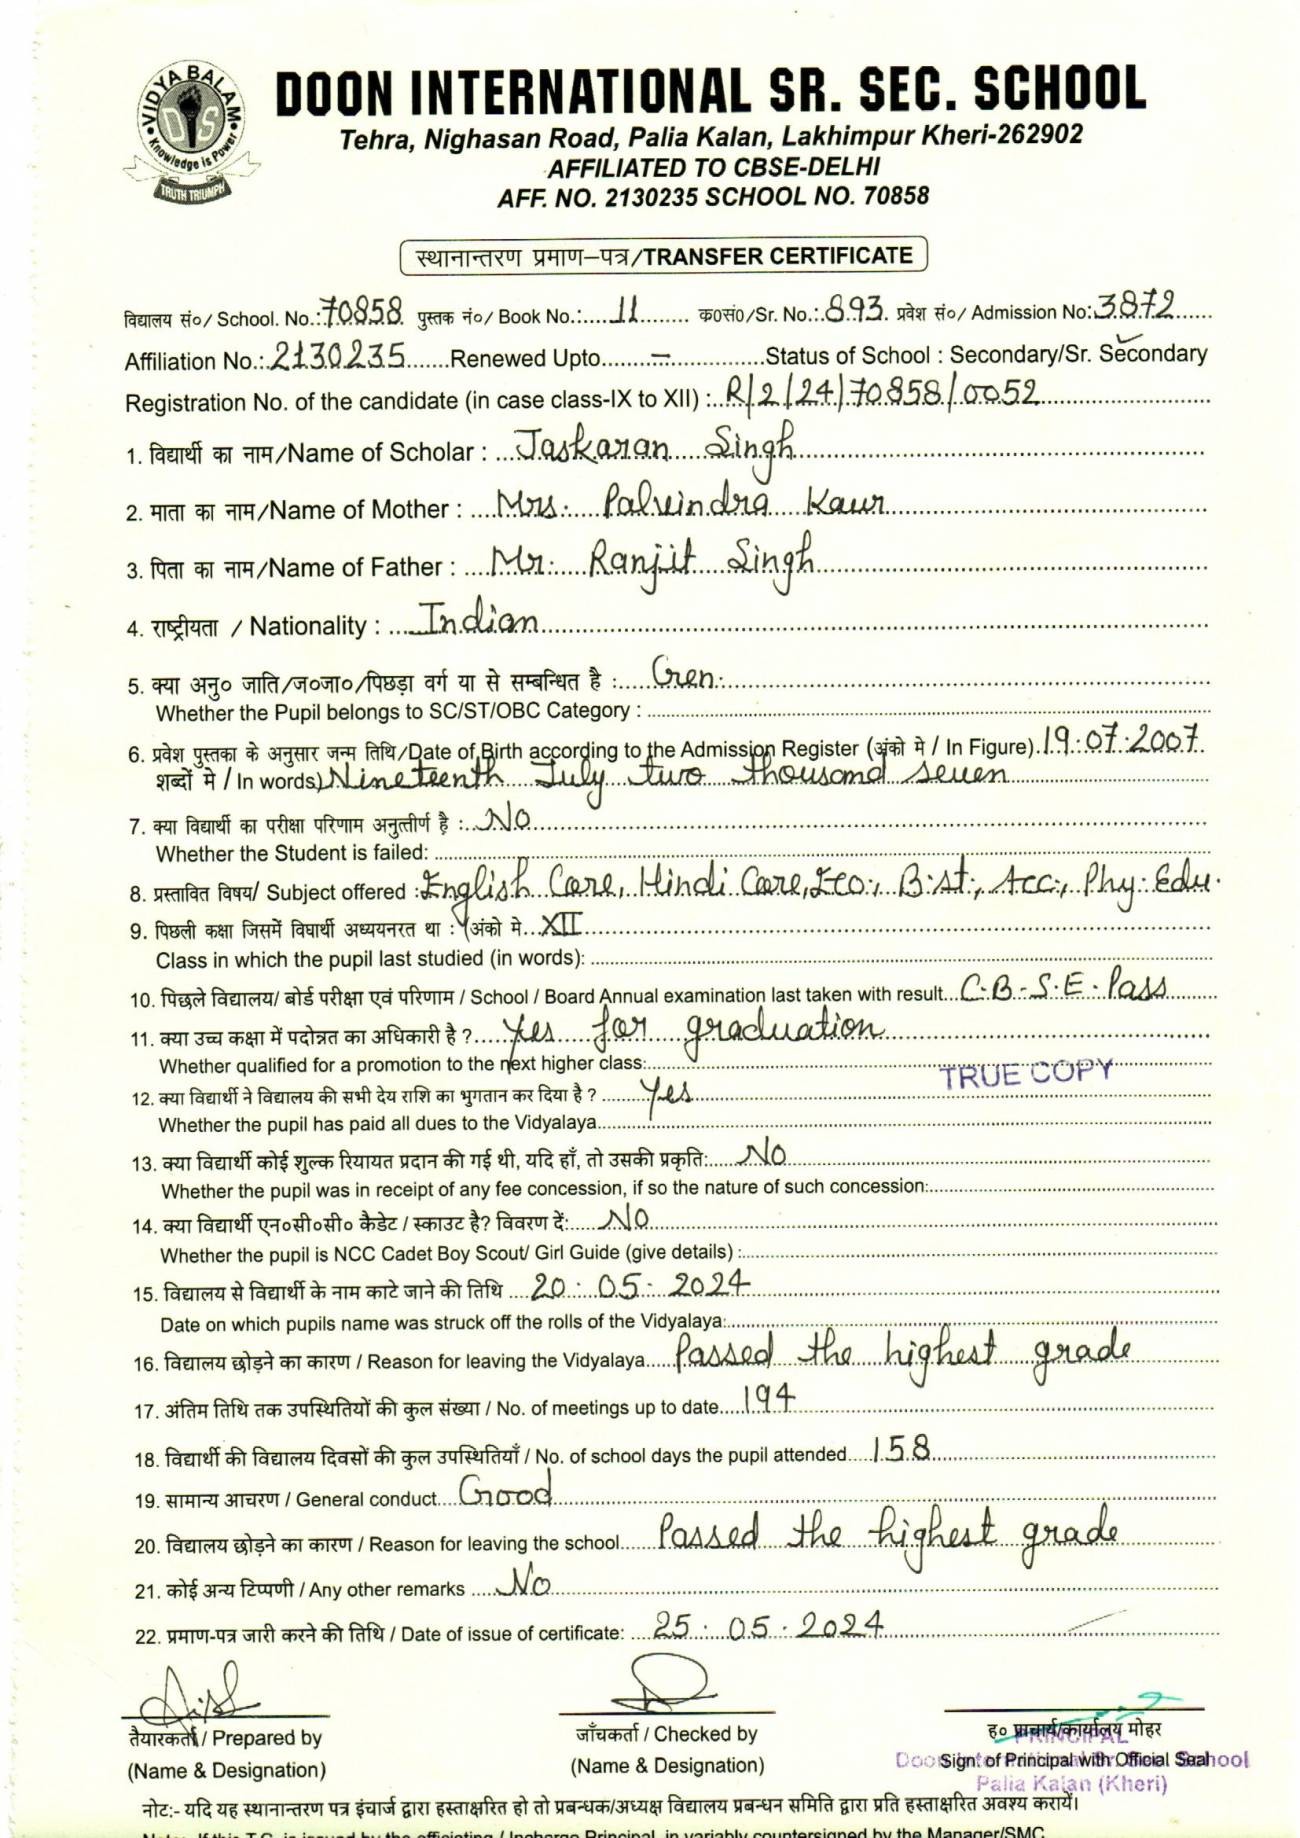 VIDYA BALAM
DS
Knowledge is Power
TRUTH TRIUMPH
DOON INTERNATIONAL SR. SEC. SCHOOL
Tehra, Nighasan Road, Palia Kalan, Lakhimpur Kheri-262902
AFFILIATED TO CBSE-DELHI
AFF. NO. 2130235 SCHOOL NO. 70858
स्थानान्तरण प्रमाण–पत्र/TRANSFER CERTIFICATE
विद्यालय सं०/ School. No.: 70858 पुस्तक नं०/ Book No.: 11 क०सं०/Sr. No.: 893 प्रवेश सं०/ Admission No: 3872
Affiliation No.: 2130235 Renewed Upto – Status of School : Secondary/Sr. Secondary
Registration No. of the candidate (in case class-IX to XII) : R/2/24/70858/0052
1. विद्यार्थी का नाम/Name of Scholar : Jaskaran Singh
2. माता का नाम/Name of Mother : Mrs. Palvindra Kaur
3. पिता का नाम/Name of Father : Mr. Ranjit Singh
4. राष्ट्रीयता / Nationality : Indian
5. क्या अनु० जाति/ज०जा०/पिछड़ा वर्ग या से सम्बन्धित है : Gen.
Whether the Pupil belongs to SC/ST/OBC Category :
6. प्रवेश पुस्तका के अनुसार जन्म तिथि/Date of Birth according to the Admission Register (अंको मे / In Figure) 19.07.2007
शब्दों मे / In words) Nineteenth July two thousand seven
7. क्या विद्यार्थी का परीक्षा परिणाम अनुत्तीर्ण है : No
Whether the Student is failed:
8. प्रस्तावित विषय/ Subject offered : English Core, Hindi Core, Eco., B.st., Acc., Phy. Edu.
9. पिछली कक्षा जिसमें विद्यार्थी अध्ययनरत था : (अंको मे XII
Class in which the pupil last studied (in words):
10. पिछले विद्यालय/ बोर्ड परीक्षा एवं परिणाम / School / Board Annual examination last taken with result C.B.S.E. Pass
11. क्या उच्च कक्षा में पदोन्नत का अधिकारी है ? Yes for graduation
Whether qualified for a promotion to the next higher class:
TRUE COPY
12. क्या विद्यार्थी ने विद्यालय की सभी देय राशि का भुगतान कर दिया है ? Yes
Whether the pupil has paid all dues to the Vidyalaya
13. क्या विद्यार्थी कोई शुल्क रियायत प्रदान की गई थी, यदि हाँ, तो उसकी प्रकृति: No
Whether the pupil was in receipt of any fee concession, if so the nature of such concession:
14. क्या विद्यार्थी एन०सी०सी० कैडेट / स्काउट है? विवरण दें: No
Whether the pupil is NCC Cadet Boy Scout/ Girl Guide (give details) :
15. विद्यालय से विद्यार्थी के नाम काटे जाने की तिथि 20.05.2024
Date on which pupils name was struck off the rolls of the Vidyalaya:
16. विद्यालय छोड़ने का कारण / Reason for leaving the Vidyalaya Passed the highest grade
17. अंतिम तिथि तक उपस्थितियों की कुल संख्या / No. of meetings up to date 194
18. विद्यार्थी की विद्यालय दिवसों की कुल उपस्थितियाँ / No. of school days the pupil attended 158
19. सामान्य आचरण / General conduct Good
20. विद्यालय छोड़ने का कारण / Reason for leaving the school Passed the highest grade
21. कोई अन्य टिप्पणी / Any other remarks No
22. प्रमाण-पत्र जारी करने की तिथि / Date of issue of certificate: 25.05.2024
तैयारकर्ता / Prepared by जाँचकर्ता / Checked by ह० प्राचार्य/कार्यालय मोहर
PRINCIPAL
(Name & Designation) (Name & Designation) Sign. of Principal with Official Seal
Doon International Sr. Sec. School
Palia Kalan (Kheri)
नोट:- यदि यह स्थानान्तरण पत्र इंचार्ज द्वारा हस्ताक्षरित हो तो प्रबन्धक/अध्यक्ष विद्यालय प्रबन्धन समिति द्वारा प्रति हस्ताक्षरित अवश्य करायें।
Note:- If this T.C. is issued by the officiating / Incharge Principal, in variably countersigned by the Manager/SMC